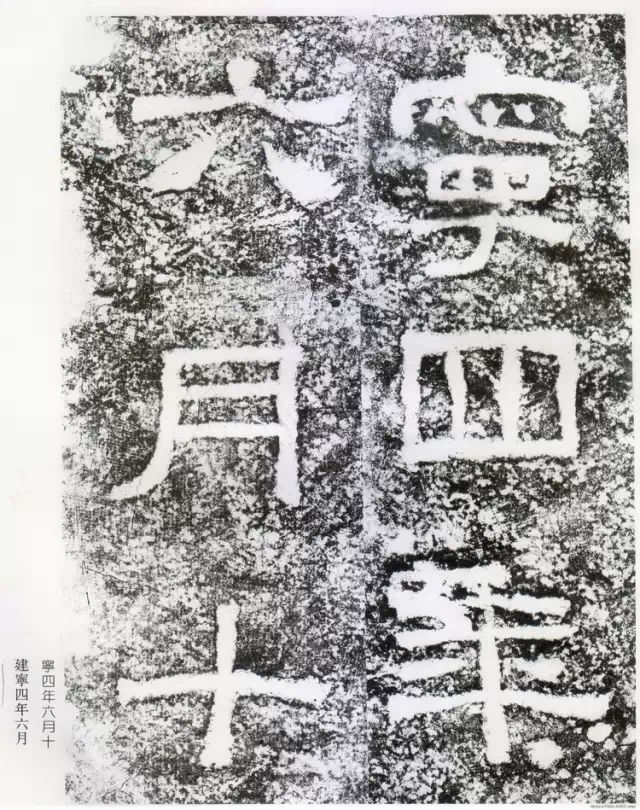 寧四年
六月十
寧四年六月十
建寧四年六月